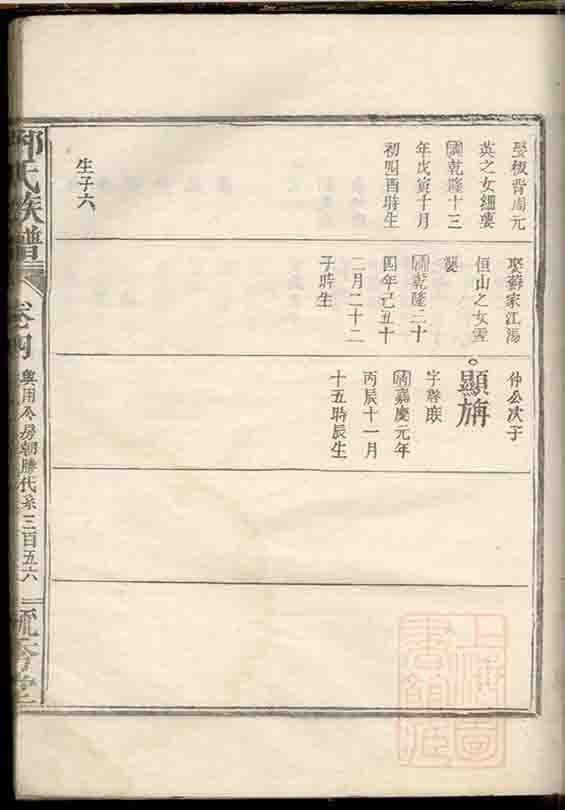 娶板背周元
英之女細婁
清乾隆二十三
年戊寅十月
初四酉時生
生子六
娶薛家江湯
恒山之女雲
清乾隆三十
四年己丑十
二月二十二
子時生
仲公次子
顯旃
字啓
清嘉慶元年
丙辰十一月
十五時辰生
氏族譜
卷四
興用公房朝勝代系三百五六
上海圖
書館藏